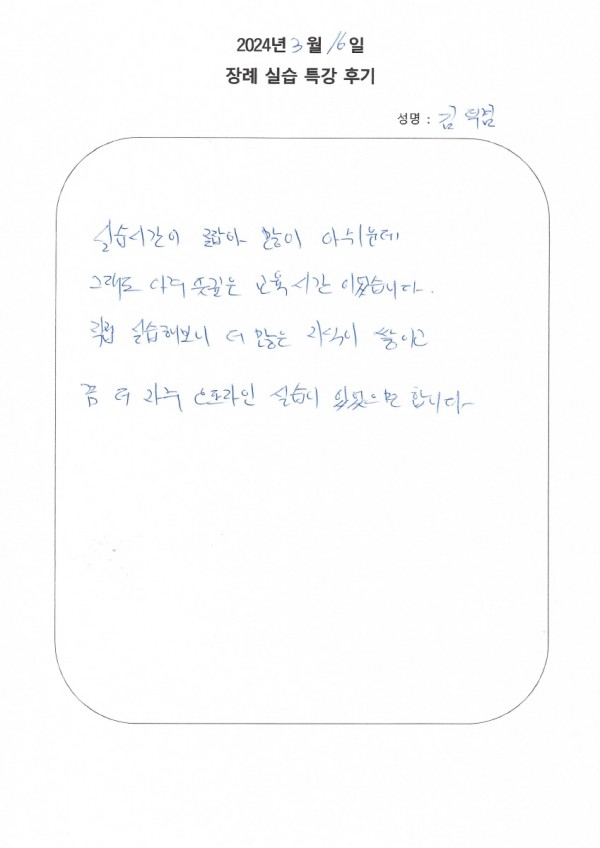 2024년 3월 16일
장례 실습 특강 후기
성명 : 김
실습시간이 짧아 많이 아쉬운데
그래도 아주 뜻깊은 교육시간 이었습니다.
직접 실습해보니 더 많은 지식이 쌓이고
좀 더 자주 오프라인 실습이 있었으면 합니다